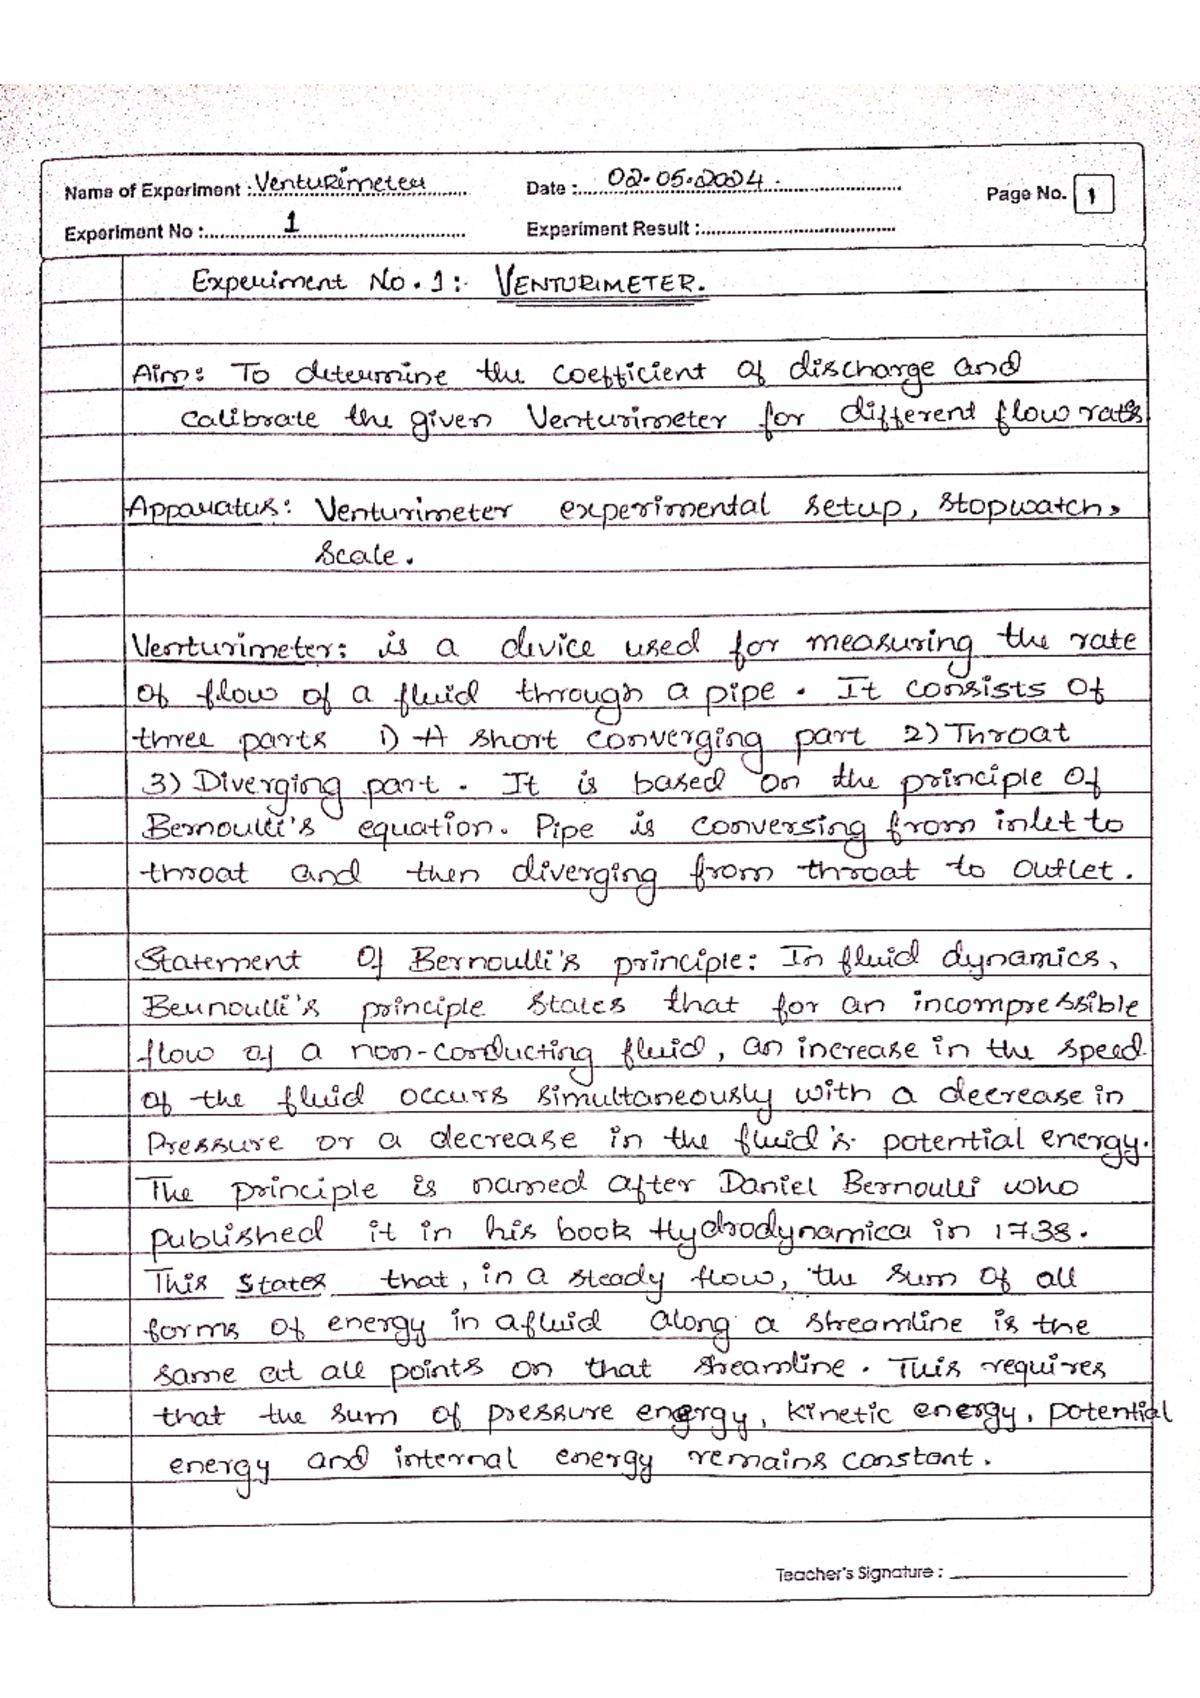 Name of Experiment : Venturimeter Date : 02.05.2024. Page No. 1
Experiment No : 1 Experiment Result :
Experiment No. 1:- VENTURIMETER.
Aim: To determine the coefficient of discharge and
calibrate the given Venturimeter for different flow rates
Apparatus: Venturimeter experimental setup, stopwatch,
Scale.
Venturimeter: is a device used for measuring the rate
of flow of a fluid through a pipe. It consists of
three parts 1) A short converging part 2) Throat
3) Diverging part. It is based on the principle of
Bernoulli's equation. Pipe is conversing from inlet to
throat and then diverging from throat to outlet.
Statement Of Bernoulli's principle: In fluid dynamics,
Bernoulli's principle states that for an incompressible
flow of a non-conducting fluid, an increase in the speed
of the fluid occurs simultaneously with a decrease in
Pressure or a decrease in the fluid's potential energy.
The principle is named after Daniel Bernoulli who
published it in his book Hydrodynamica in 1738.
This States that, in a steady flow, the sum of all
forms of energy in a fluid along a streamline is the
same at all points on that streamline. This requires
that the sum of pressure energy, kinetic energy, potential
energy and internal energy remains constant.
Teacher's Signature :